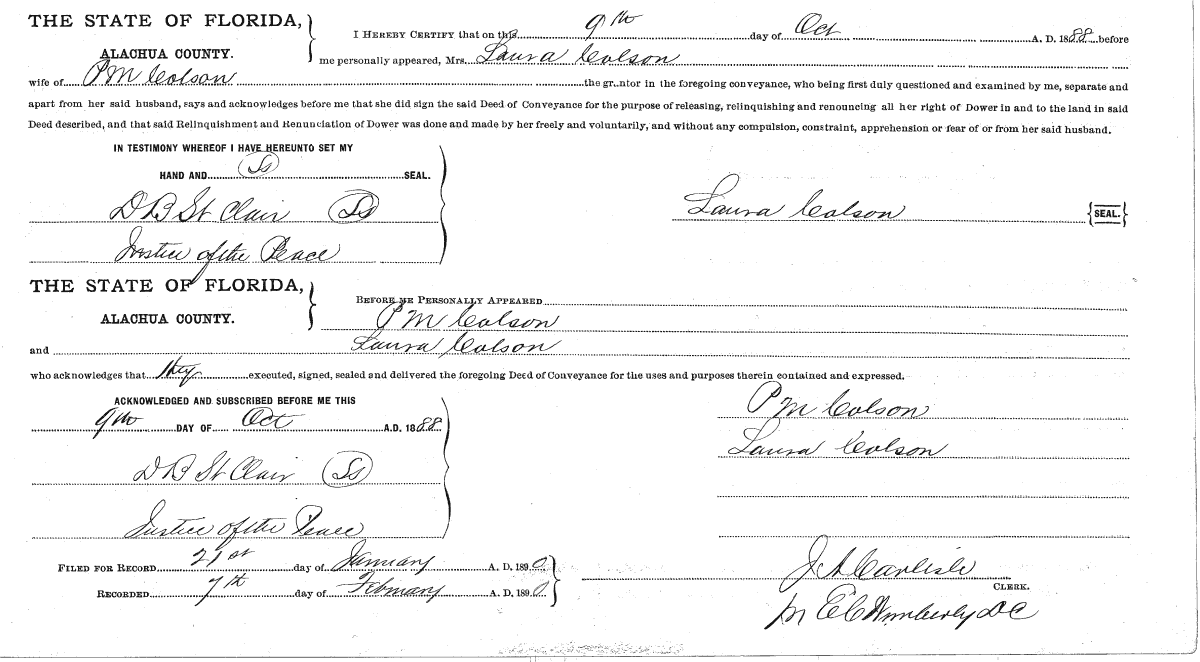 THE STATE OF FLORIDA,
ALACHUA COUNTY.
I HEREBY CERTIFY that on this 9th day of Oct A. D. 1888 before
me personally appeared, Mrs. Laura Colson
wife of P M Colson the gr..ntor in the foregoing conveyance, who being first duly questioned and examined by me, separate and
apart from her said husband, says and acknowledges before me that she did sign the said Deed of Conveyance for the purpose of releasing, relinquishing and renouncing all her right of Dower in and to the land in said
Deed described, and that said Relinquishment and Renunciation of Dower was done and made by her freely and voluntarily, and without any compulsion, constraint, apprehension or fear of or from her said husband.
IN TESTIMONY WHEREOF I HAVE HEREUNTO SET MY
HAND AND Ss SEAL.
D B St Clair Ss
Laura Colson SEAL.
Justice of the Peace
THE STATE OF FLORIDA,
ALACHUA COUNTY.
BEFORE ME PERSONALLY APPEARED
P M Colson
and Laura Colson
who acknowledges that they executed, signed, sealed and delivered the foregoing Deed of Conveyance for the uses and purposes therein contained and expressed.
ACKNOWLEDGED AND SUBSCRIBED BEFORE ME THIS
P M Colson
9th DAY OF Oct A.D. 1888
Laura Colson
D B St Clair Ss
Justice of the Peace
FILED FOR RECORD 21st day of January A. D. 1890
J A Carlisle
CLERK.
RECORDED 7th day of February A. D. 1890
E C Wimberly DC